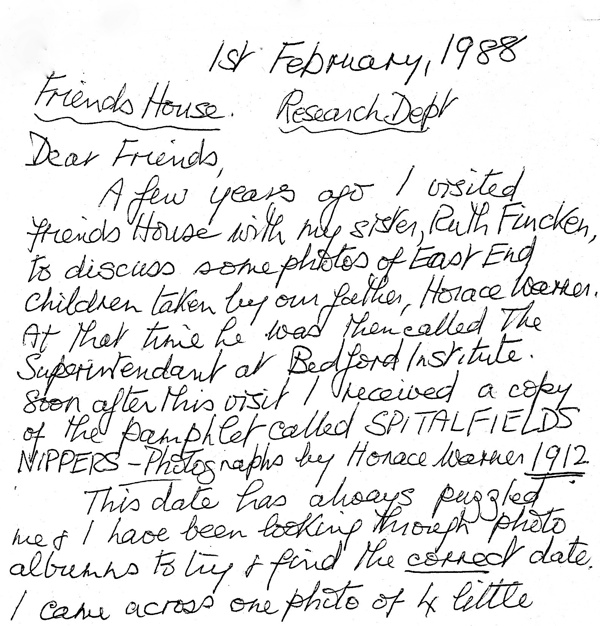 1st February, 1988
Friends House. Research Dept
Dear Friends,
A few years ago I visited
Friends House with my sister, Ruth Fincken,
to discuss some photos of East End
children taken by our father, Horace Warner.
At that time he was then called The
Superintendant at Bedford Institute.
Soon after this visit I received a copy
of the pamphlet called SPITALFIELDS
NIPPERS – Photographs by Horace Warner 1912
This date has always puzzled
me & I have been looking through photo
albumns to try & find the correct date.
I came across one photo of 4 little